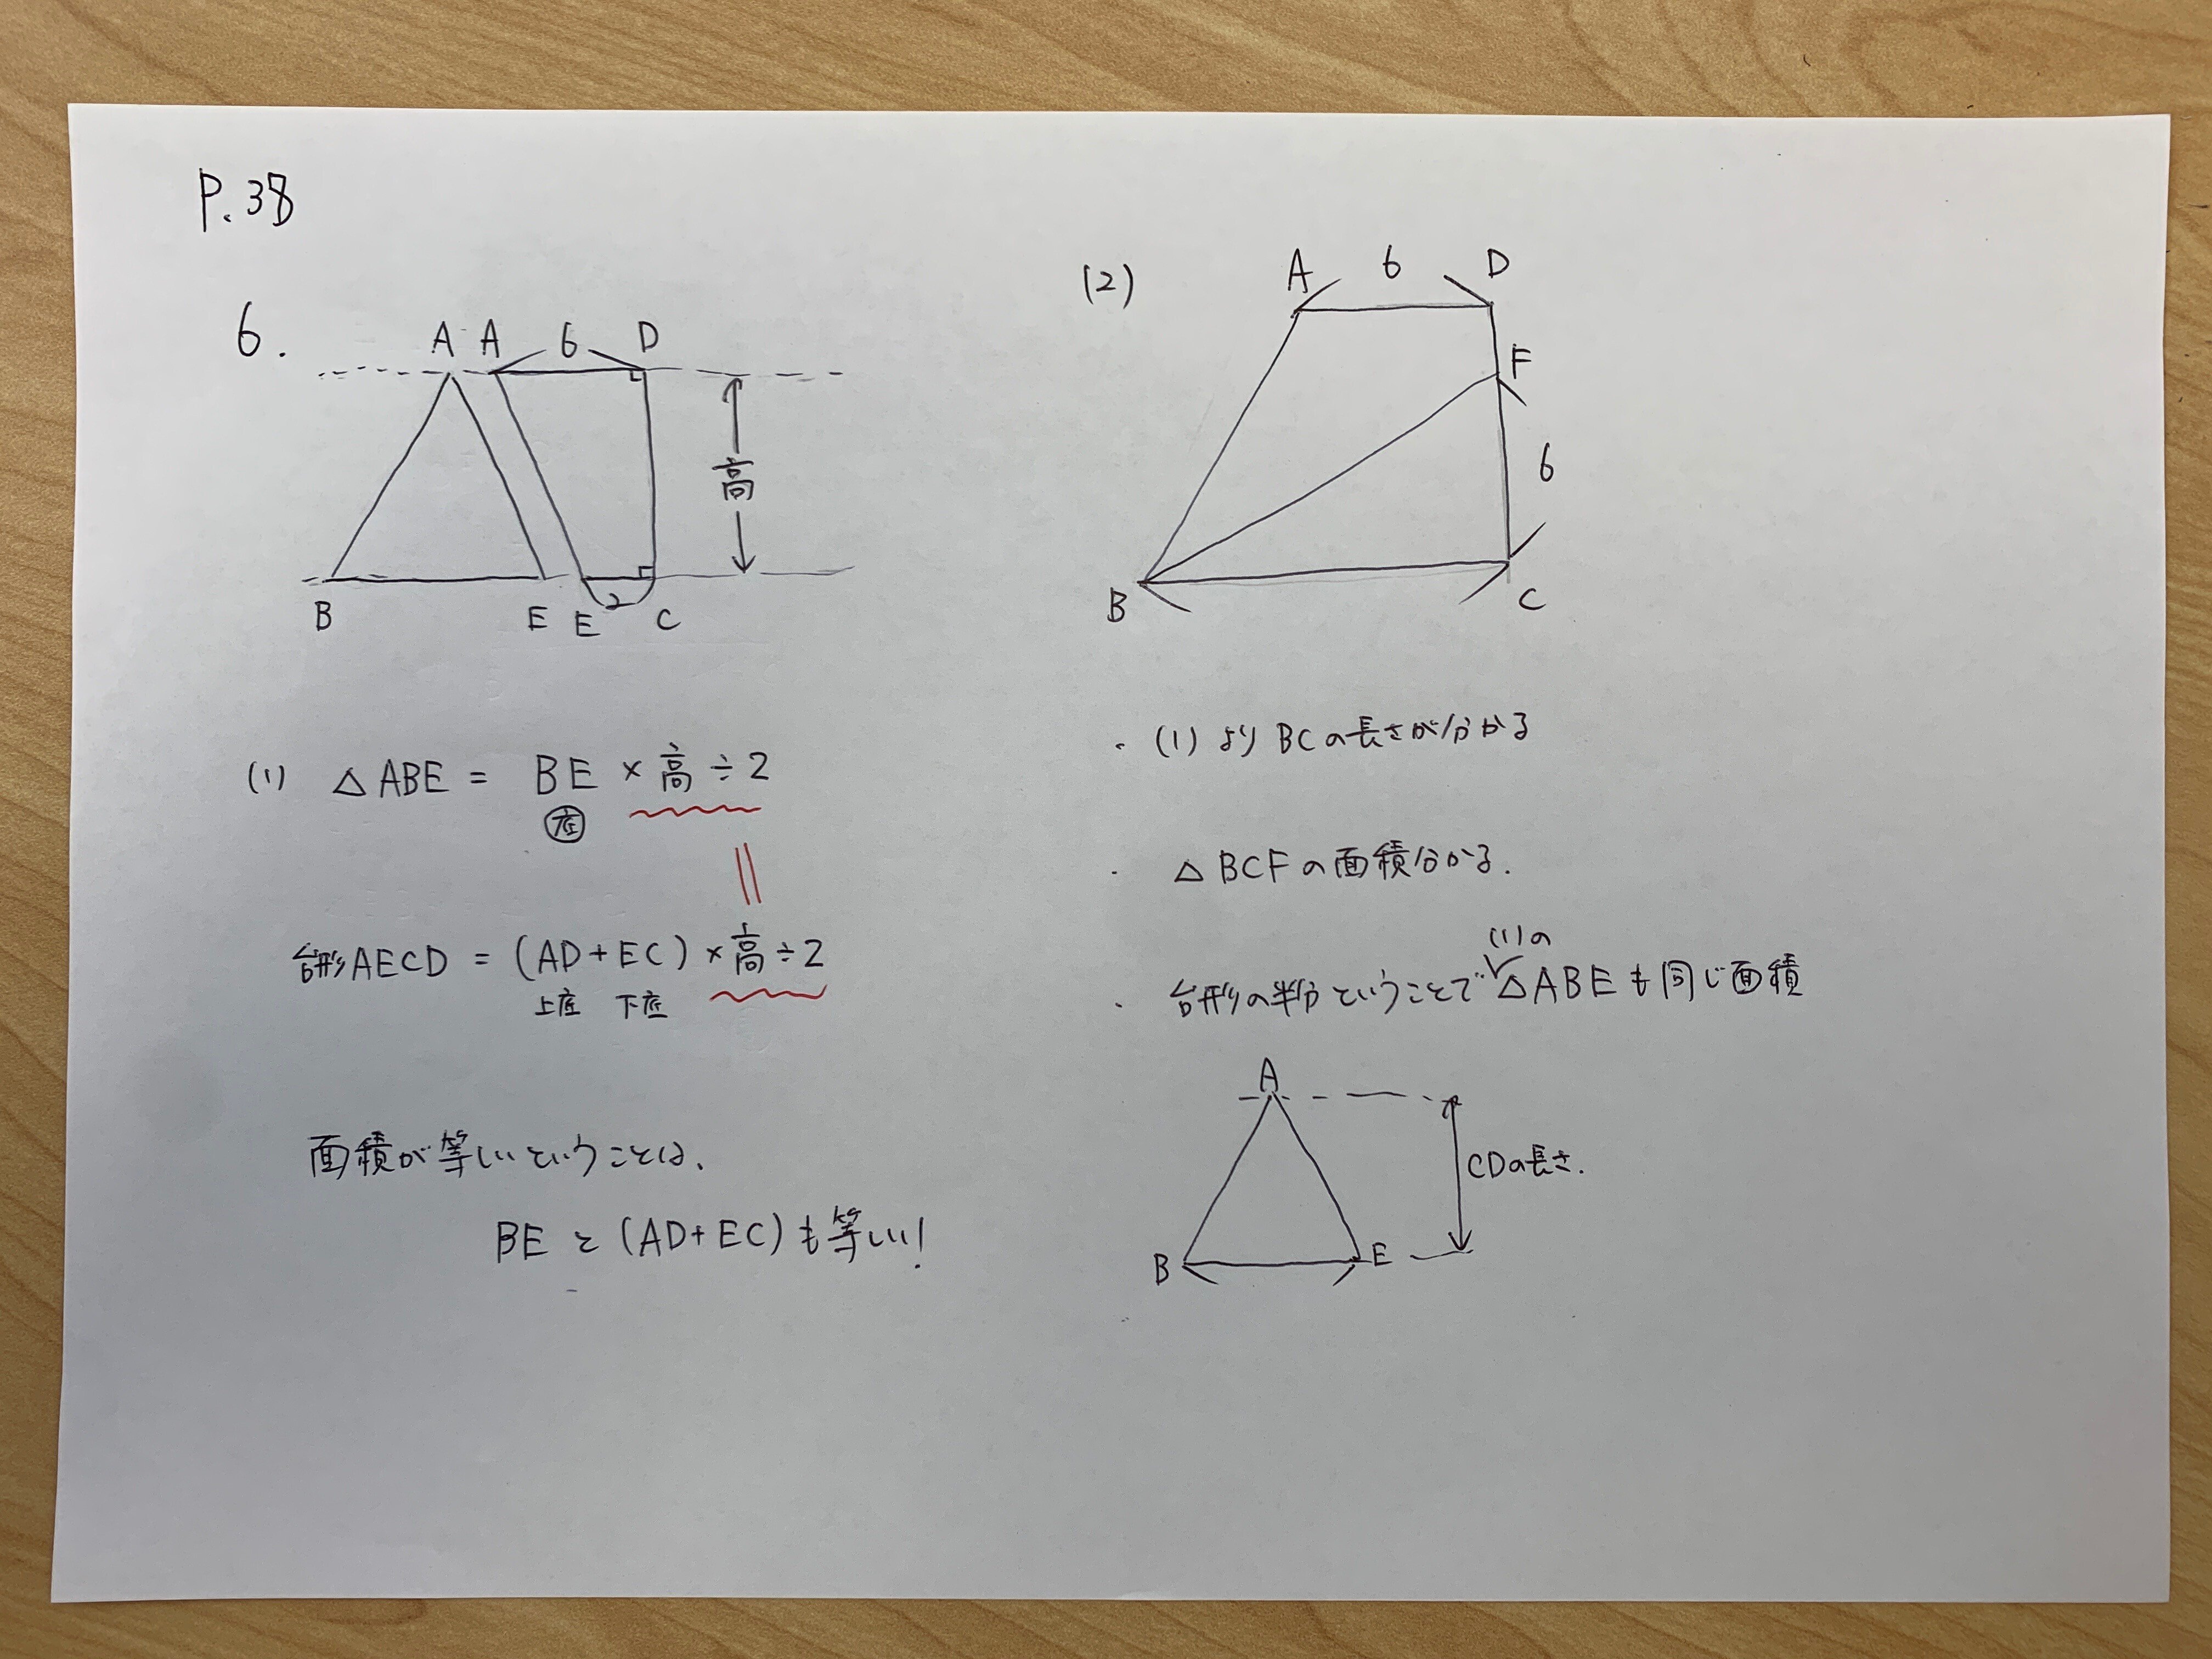 P.38
6.
A A 6 D
高
B E E 2 C
(1) △ABE = BE × 高 ÷ 2
底
台形AECD = (AD+EC) × 高 ÷ 2
上底 下底
面積が等しいということは、
BE と (AD+EC) も等しい!
(2)
A 6 D
F
6
B C
・(1) より BCの長さが分かる
・△BCFの面積分かる.
(1)の
・台形の半分ということで△ABEも同じ面積
A
CDの長さ.
B E